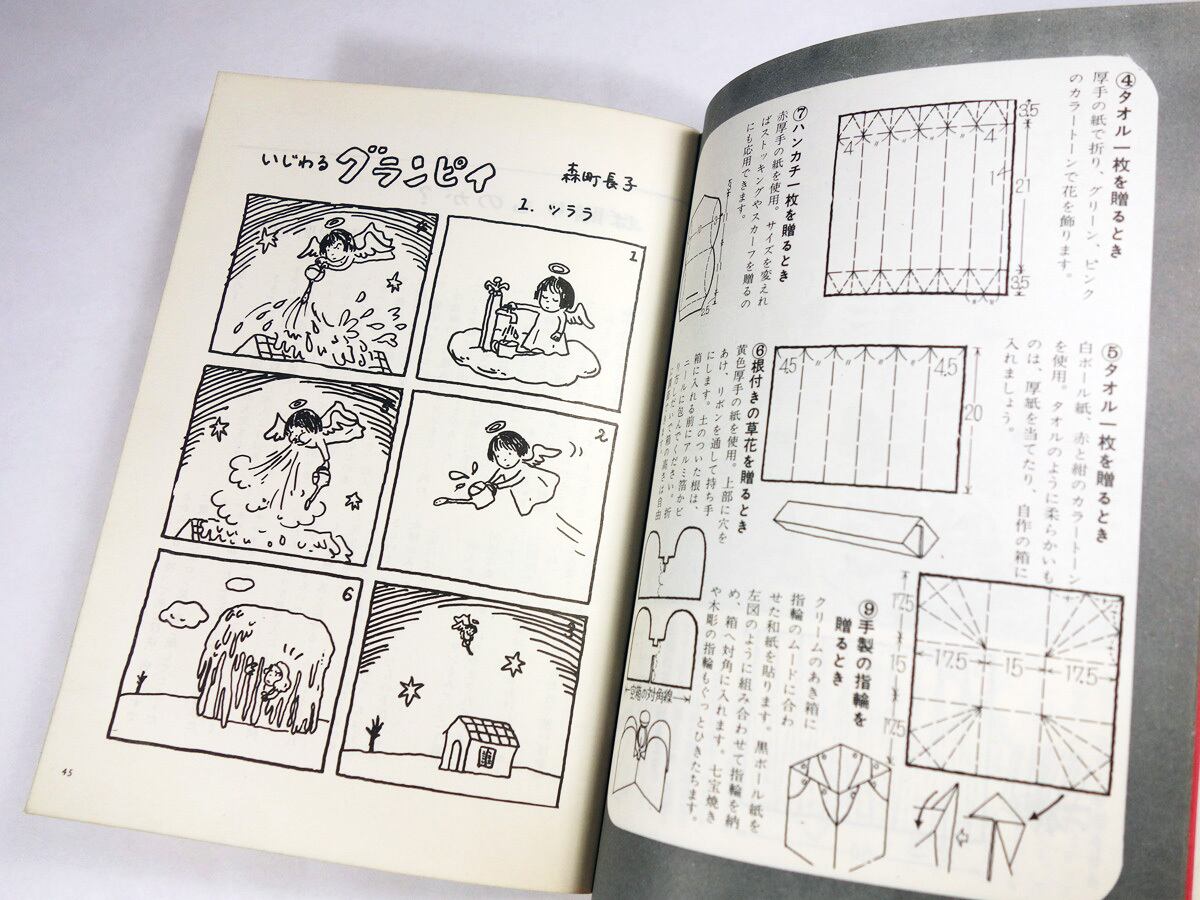 いじわる グランピイ
森町長子
1. ツララ
1
2
3
4
5
6
45
④タオル一枚を贈るとき
厚手の紙で折り、グリーン、ピンク
のカラートーンで花を飾ります。
3.5
4
4
14
21
3.5
⑦ハンカチ一枚を贈るとき
赤厚手の紙を使用。サイズを変えれ
ばストッキングやスカーフを贈るの
にも応用できます。
2.5
⑤タオル一枚を贈るとき
白ボール紙、赤と紺のカラートーン
を使用。タオルのように柔らかいも
のは、厚紙を当てたり、自作の箱に
入れましょう。
4.5
4.5
20
⑥根付きの草花を贈るとき
黄色厚手の紙を使用。上部に穴を
あけ、リボンを通して持ち手
にします。土のついた根は、
箱に入れる前にアルミ箔かビ
ニールに包んでください。折
⑨手製の指輪を
贈るとき
クリームのあき箱に
指輪のムードに合わ
せた和紙を貼ります。黒ボール紙を
左図のように組み合わせて指輪を納
め、箱へ対角に入れます。七宝焼き
や木彫の指輪もぐっとひきたちます。
空箱の対角線
17.5
15
17.5
17.5
15
17.5